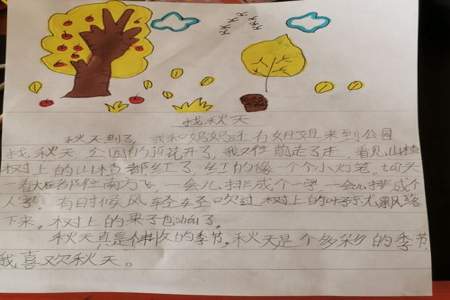 找秋天
秋天到了,我和妈妈还有姐姐来到公园
找秋天,公园的菊花开了,我又往前走了走,看见山楂
树上的山楂都红了,红的像一个个小灯笼,抬头
一看大雁都往南方飞,一会儿排成个一字,一会儿排成个
人字,有时候风轻轻吹过,树上的叶子
下来,树上的果子
秋天真是个丰收的季节,秋天是个多彩的季节
我喜欢秋天。